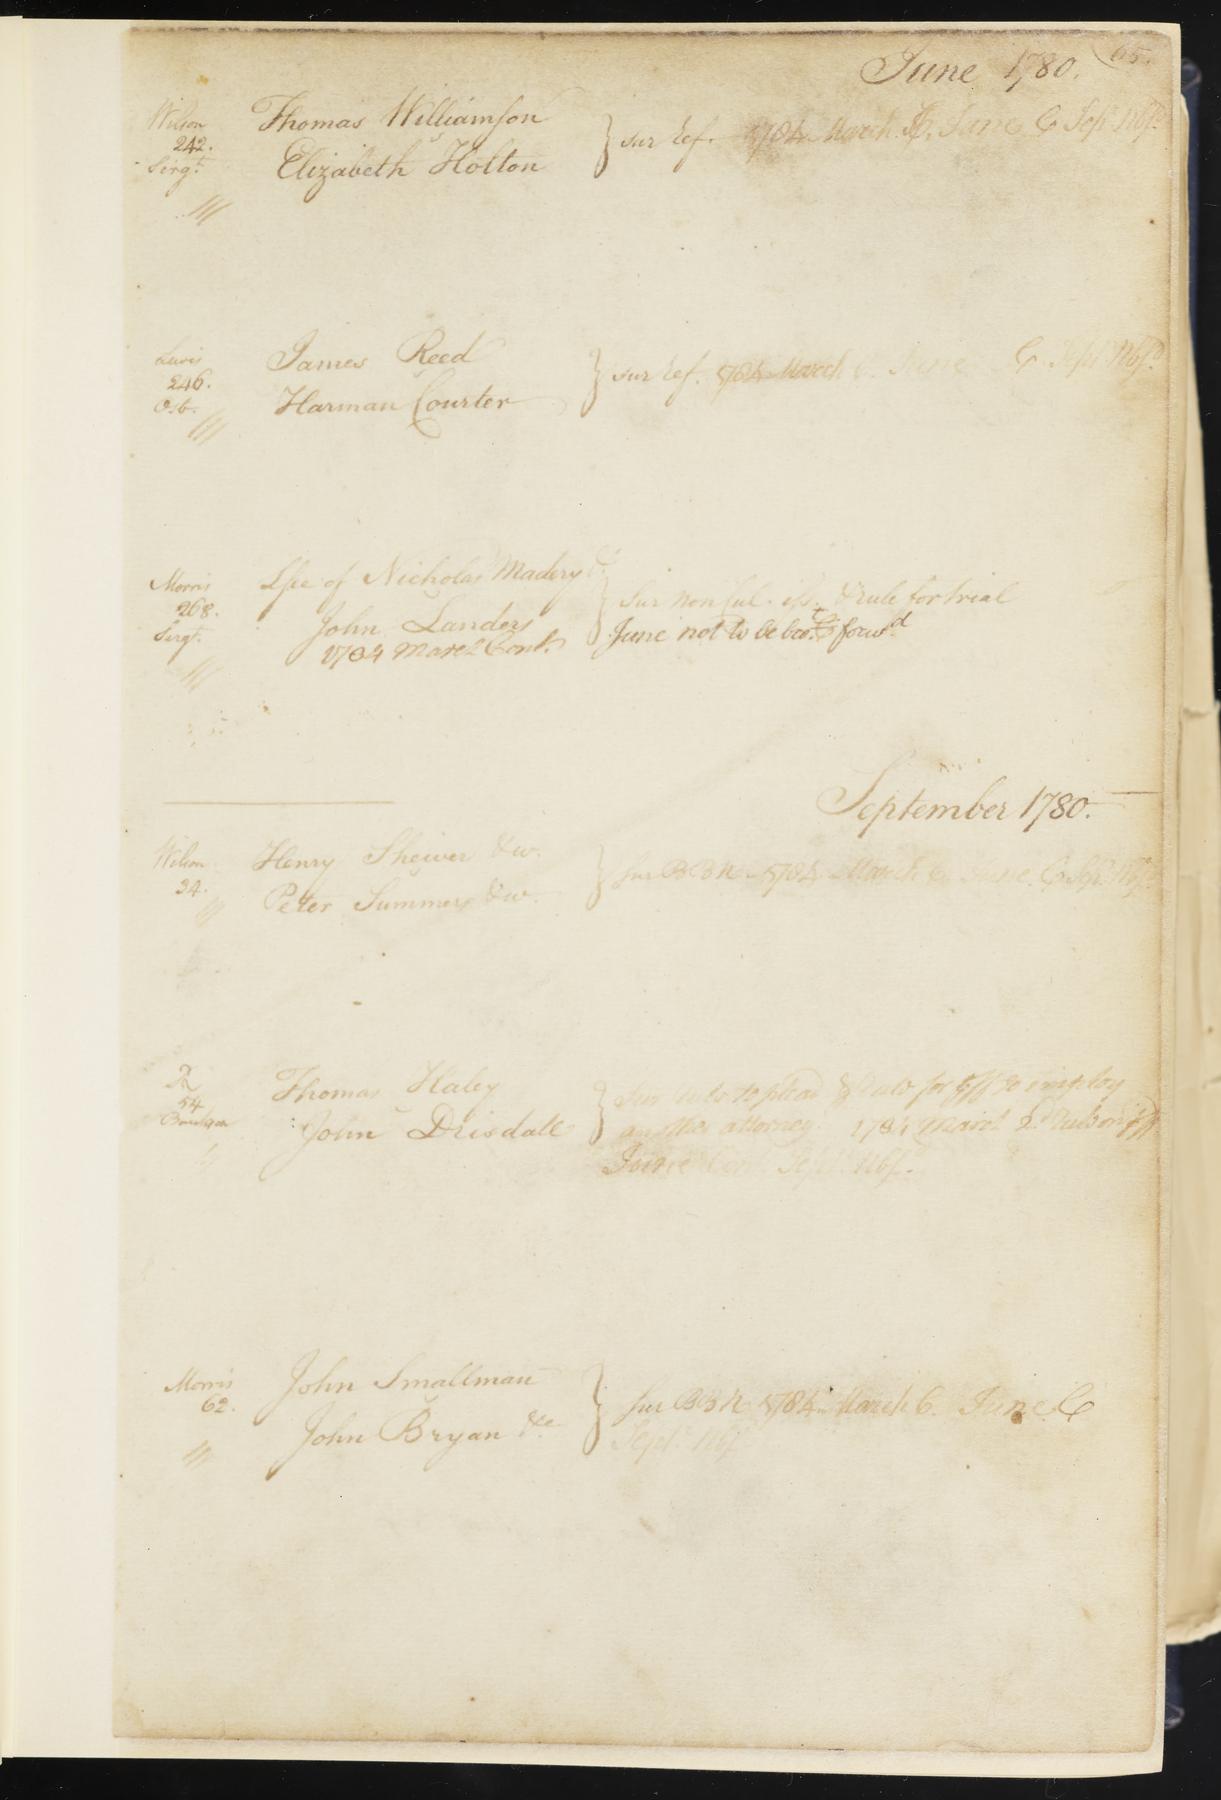 June 1780. (65.
Wilson Thomas Williamson
242. } sur ref. 1784 March C. June C Sept. Nbf.
Sergt. Elizabeth Holton
Lewis James Reed
246. } sur ref. 1784 March C. June C Sept. Nbf.
Harman Courter
Morris Lsee of Nicholas Madery &c.
268. } sur non cul. iss. & rule for trial
Sergt. John Landers June not to be bro.t forw.d
1784 March Cont.
September 1780.
Wilson Henry Sheiver & w.
34. } sur BCBN 1784 March C. June C Sept. Nbf.
Peter Summers & w.
R Thomas Haley
54 } sur rule to plead & rule for pff to employ
John Drisdall another attorney. 1784 March
June Cont. Sept. Nbf.
Morris John Smallman
62. } sur BCBN 1784 March C. June C
John Bryan &c Sept. Nbf.